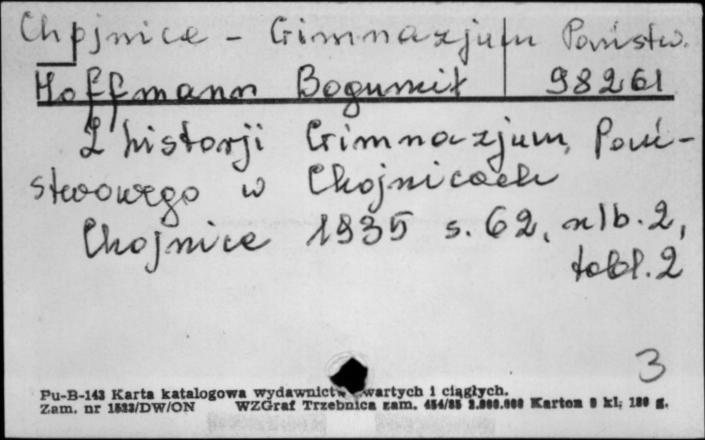 Chojnice - Gimnazjum Państw.
Hoffmann Bogumił 98261
Z historji Gimnazjum Pań-
stwowego w Chojnicach
Chojnice 1935 s. 62, nlb. 2,
tabl. 2
3
Pu-B-143 Karta katalogowa wydawnictw zwartych i ciągłych.
Zam. nr 1523/DW/ON WZGraf Trzebnica zam. 454/85 2.000.000 Karton 9 kl; 180 g.